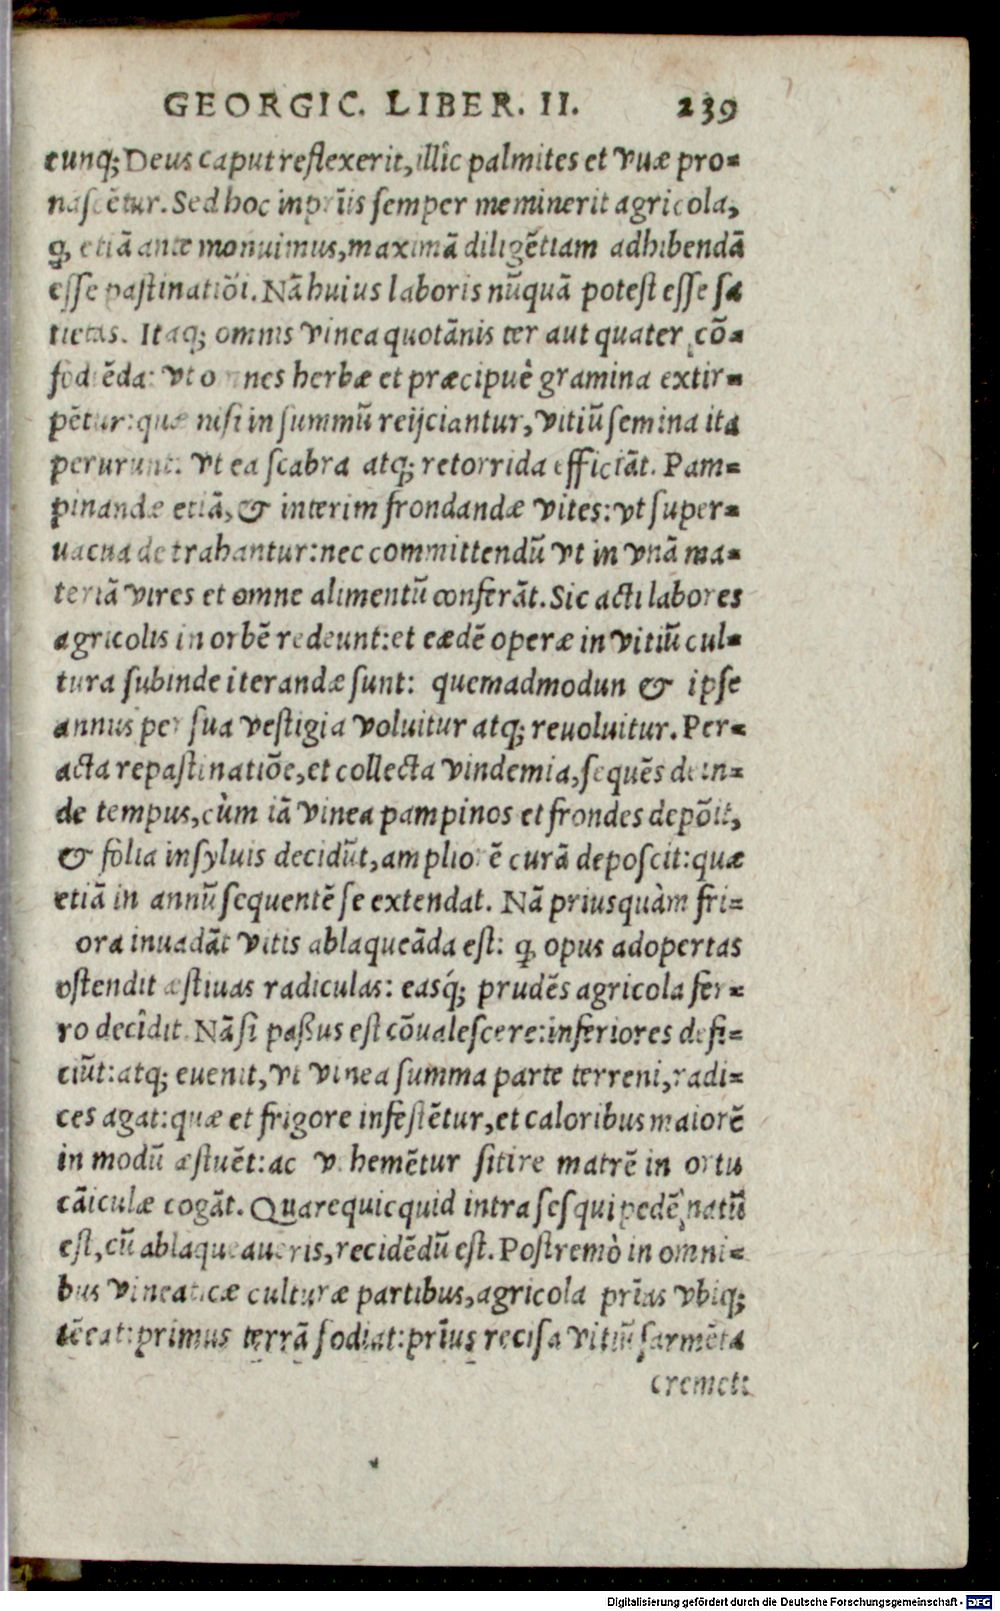 GEORGIC. LIBER. II. 239
cunq; Deus caput reflexerit, illîc palmites et vuæ pro-
nascētur. Sed hoc inprĩis semper meminerit agricola,
ꝙ etiā ante monuimus, maximā diligētiam adhibendā
esse pastinatiõi. Nā huius laboris nũquā potest esse sa
tietas. Itaq; omnis vinea quotānis ter aut quater cõ-
fodiēda: vt omnes herbæ et præcipuè gramina extir-
pētur: quæ nisi in summũ reijciantur, vitiũ semina ita
perurunt: vt ea scabra atq; retorrida efficiāt. Pam-
pinandæ etiā, & interim frondandæ vites: vt super-
uacua detrahantur: nec committendũ vt in vnā ma-
teriā vires et omne alimentũ conferāt. Sic acti labores
agricolis in orbē redeunt: et eædē operæ in vitiũ cul-
tura subinde iterandæ sunt: quemadmodun & ipse
annus per sua vestigia voluitur atq; reuoluitur. Per-
acta repastinatiõe, et collecta vindemia, sequēs dein-
de tempus, cùm iā vinea pampinos et frondes depõit,
& folia in syluis decidũt, ampliorē curā deposcit: quæ
etiā in annũ sequentē se extendat. Nā priusquàm fri-
ora inuadāt vitis ablaqueāda est: ꝙ opus adopertas
ostendit æstiuas radiculas: easq́; prudēs agricola fer-
ro decîdit. Nā si paßus est cõualescere: inferiores defi-
ciũt: atq; euenit, vt vinea summa parte terreni, radi-
ces agat: quæ et frigore infestētur, et caloribus maiorē
in modũ æstuēt: ac vehemētur sitire matrē in ortu
cāiculæ cogāt. Quare quicquid intra sesquipedē natũ
est, cũ ablaqueaueris, recidēdũ est. Postremò in omni-
bus vineaticæ culturæ partibus, agricola prĩas vbiq;
tēeat: primus terrā fodiat: prĩus recisa vitiũ sarmēta
cremet: